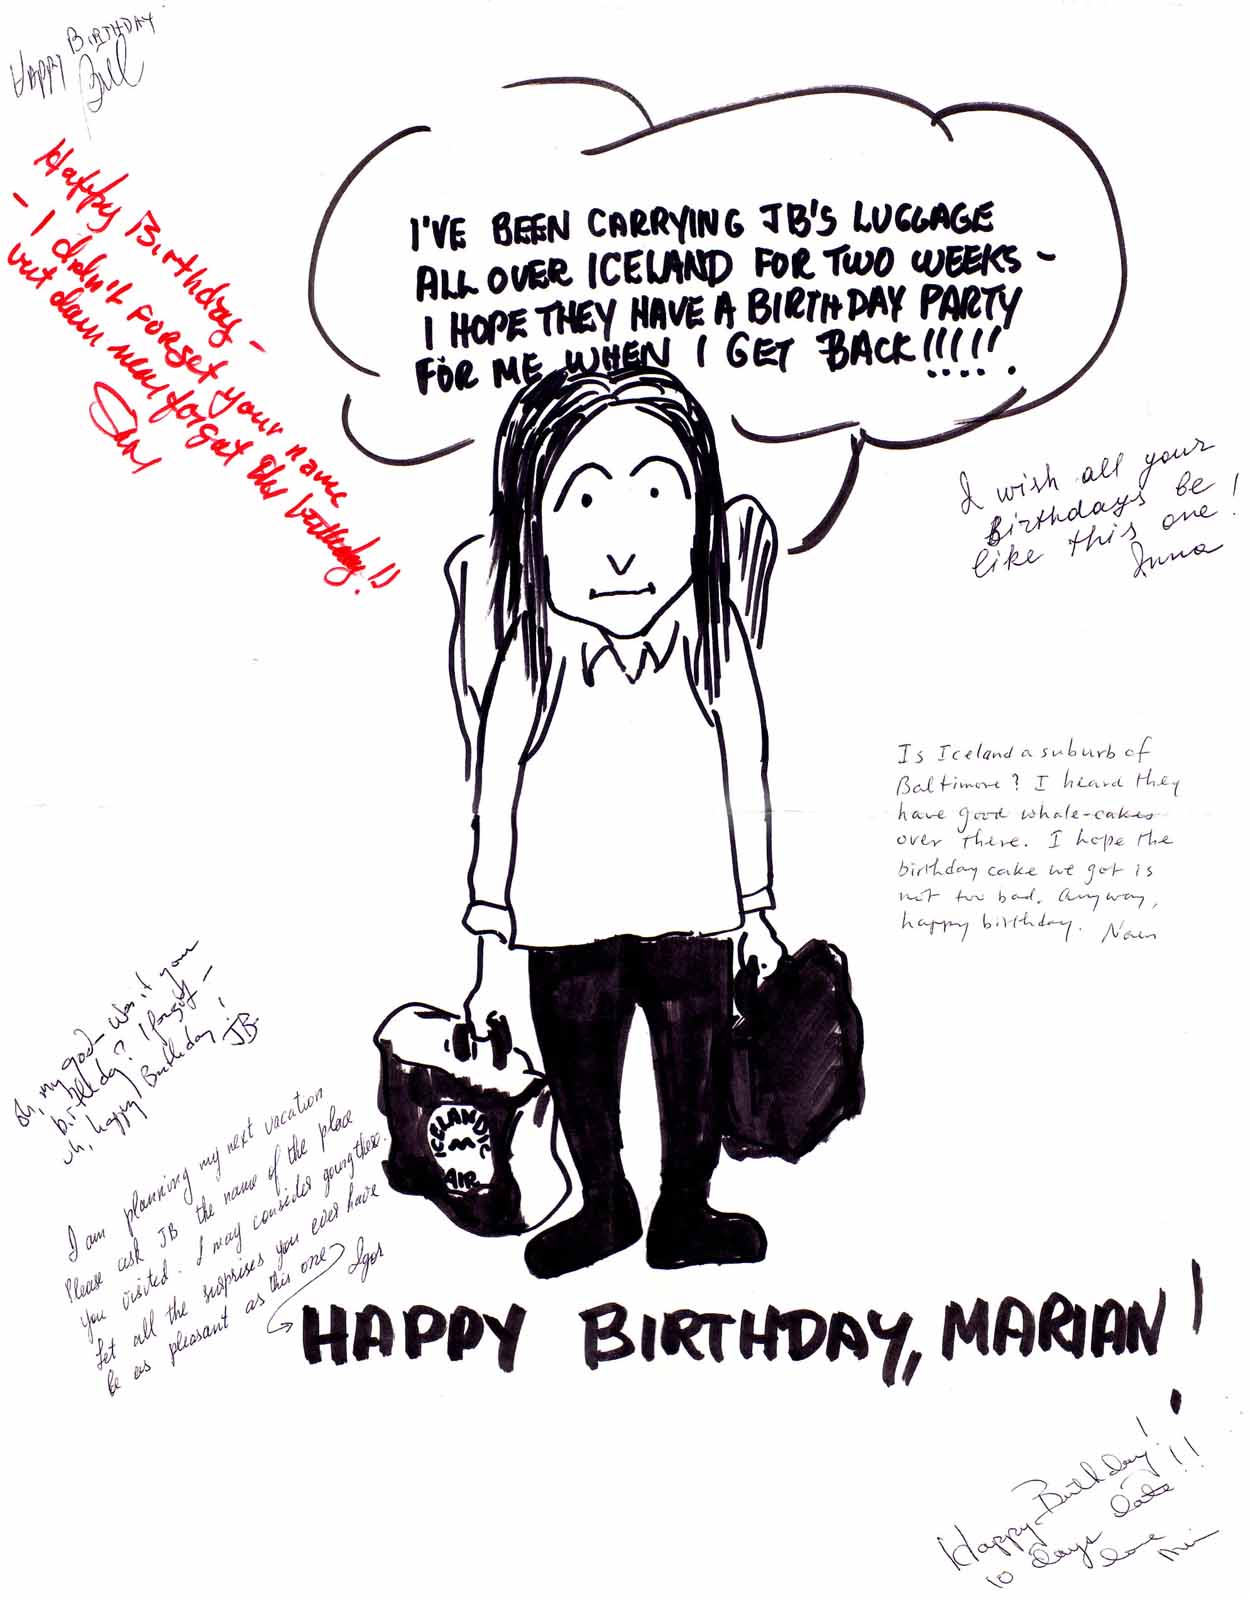 HAPPY BIRTHDAY
Bill
Happy Birthday -
- I didn't forget your name
but damn near forgot the birthday!!
I'VE BEEN CARRYING JB'S LUGGAGE
ALL OVER ICELAND FOR TWO WEEKS -
I HOPE THEY HAVE A BIRTHDAY PARTY
FOR ME WHEN I GET BACK!!!!!
I wish all your
Birthdays be
like this one!
Inna
Is Iceland a suburb of
Baltimore? I heard they
have good whale-cakes
over there. I hope the
birthday cake we got is
not too bad. Anyway,
happy birthday. Noam
Oh, my god - Was it your
birthday? I forgot -
Uh, happy Birthday!
JB
I am planning my next vacation
Please ask JB the name of the place
you visited. I may consider going there.
Let all the surprises you ever have
be as pleasant as this one
Igor
ICELANDIC
AIR
HAPPY BIRTHDAY, MARIAN!
Happy Birthday!
10 days late!!
love